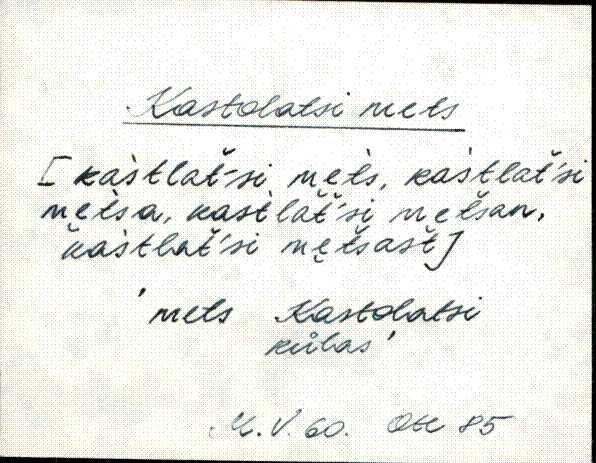 Kastolatsi mets
[kàśtlat̆-si mę̀t́s, kàśtlat̆'si
mèt́sa, kaśtlàt̆'si mèt̆san,
kàśtlat̆'si mę̀t̆sašt]
'mets Kastolatsi
külas'
M.V. 60. Ote 85